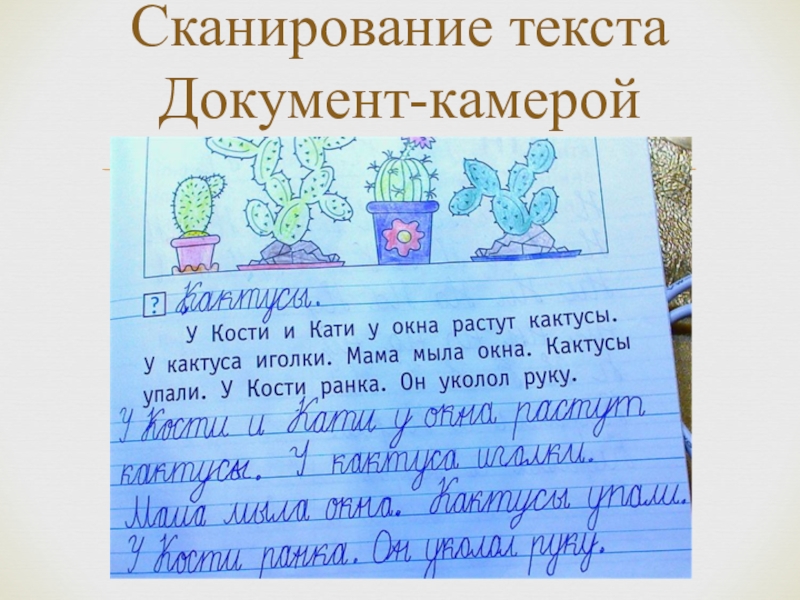 Сканирование текста
Документ-камерой
? Кактусы.
У Кости и Кати у окна растут кактусы.
У кактуса иголки. Мама мыла окна. Кактусы
упали. У Кости ранка. Он уколол руку.
У Кости и Кати у окна растут
кактусы. У кактуса иголки.
Мама мыла окна. Кактусы упали.
У Кости ранка. Он уколол руку.